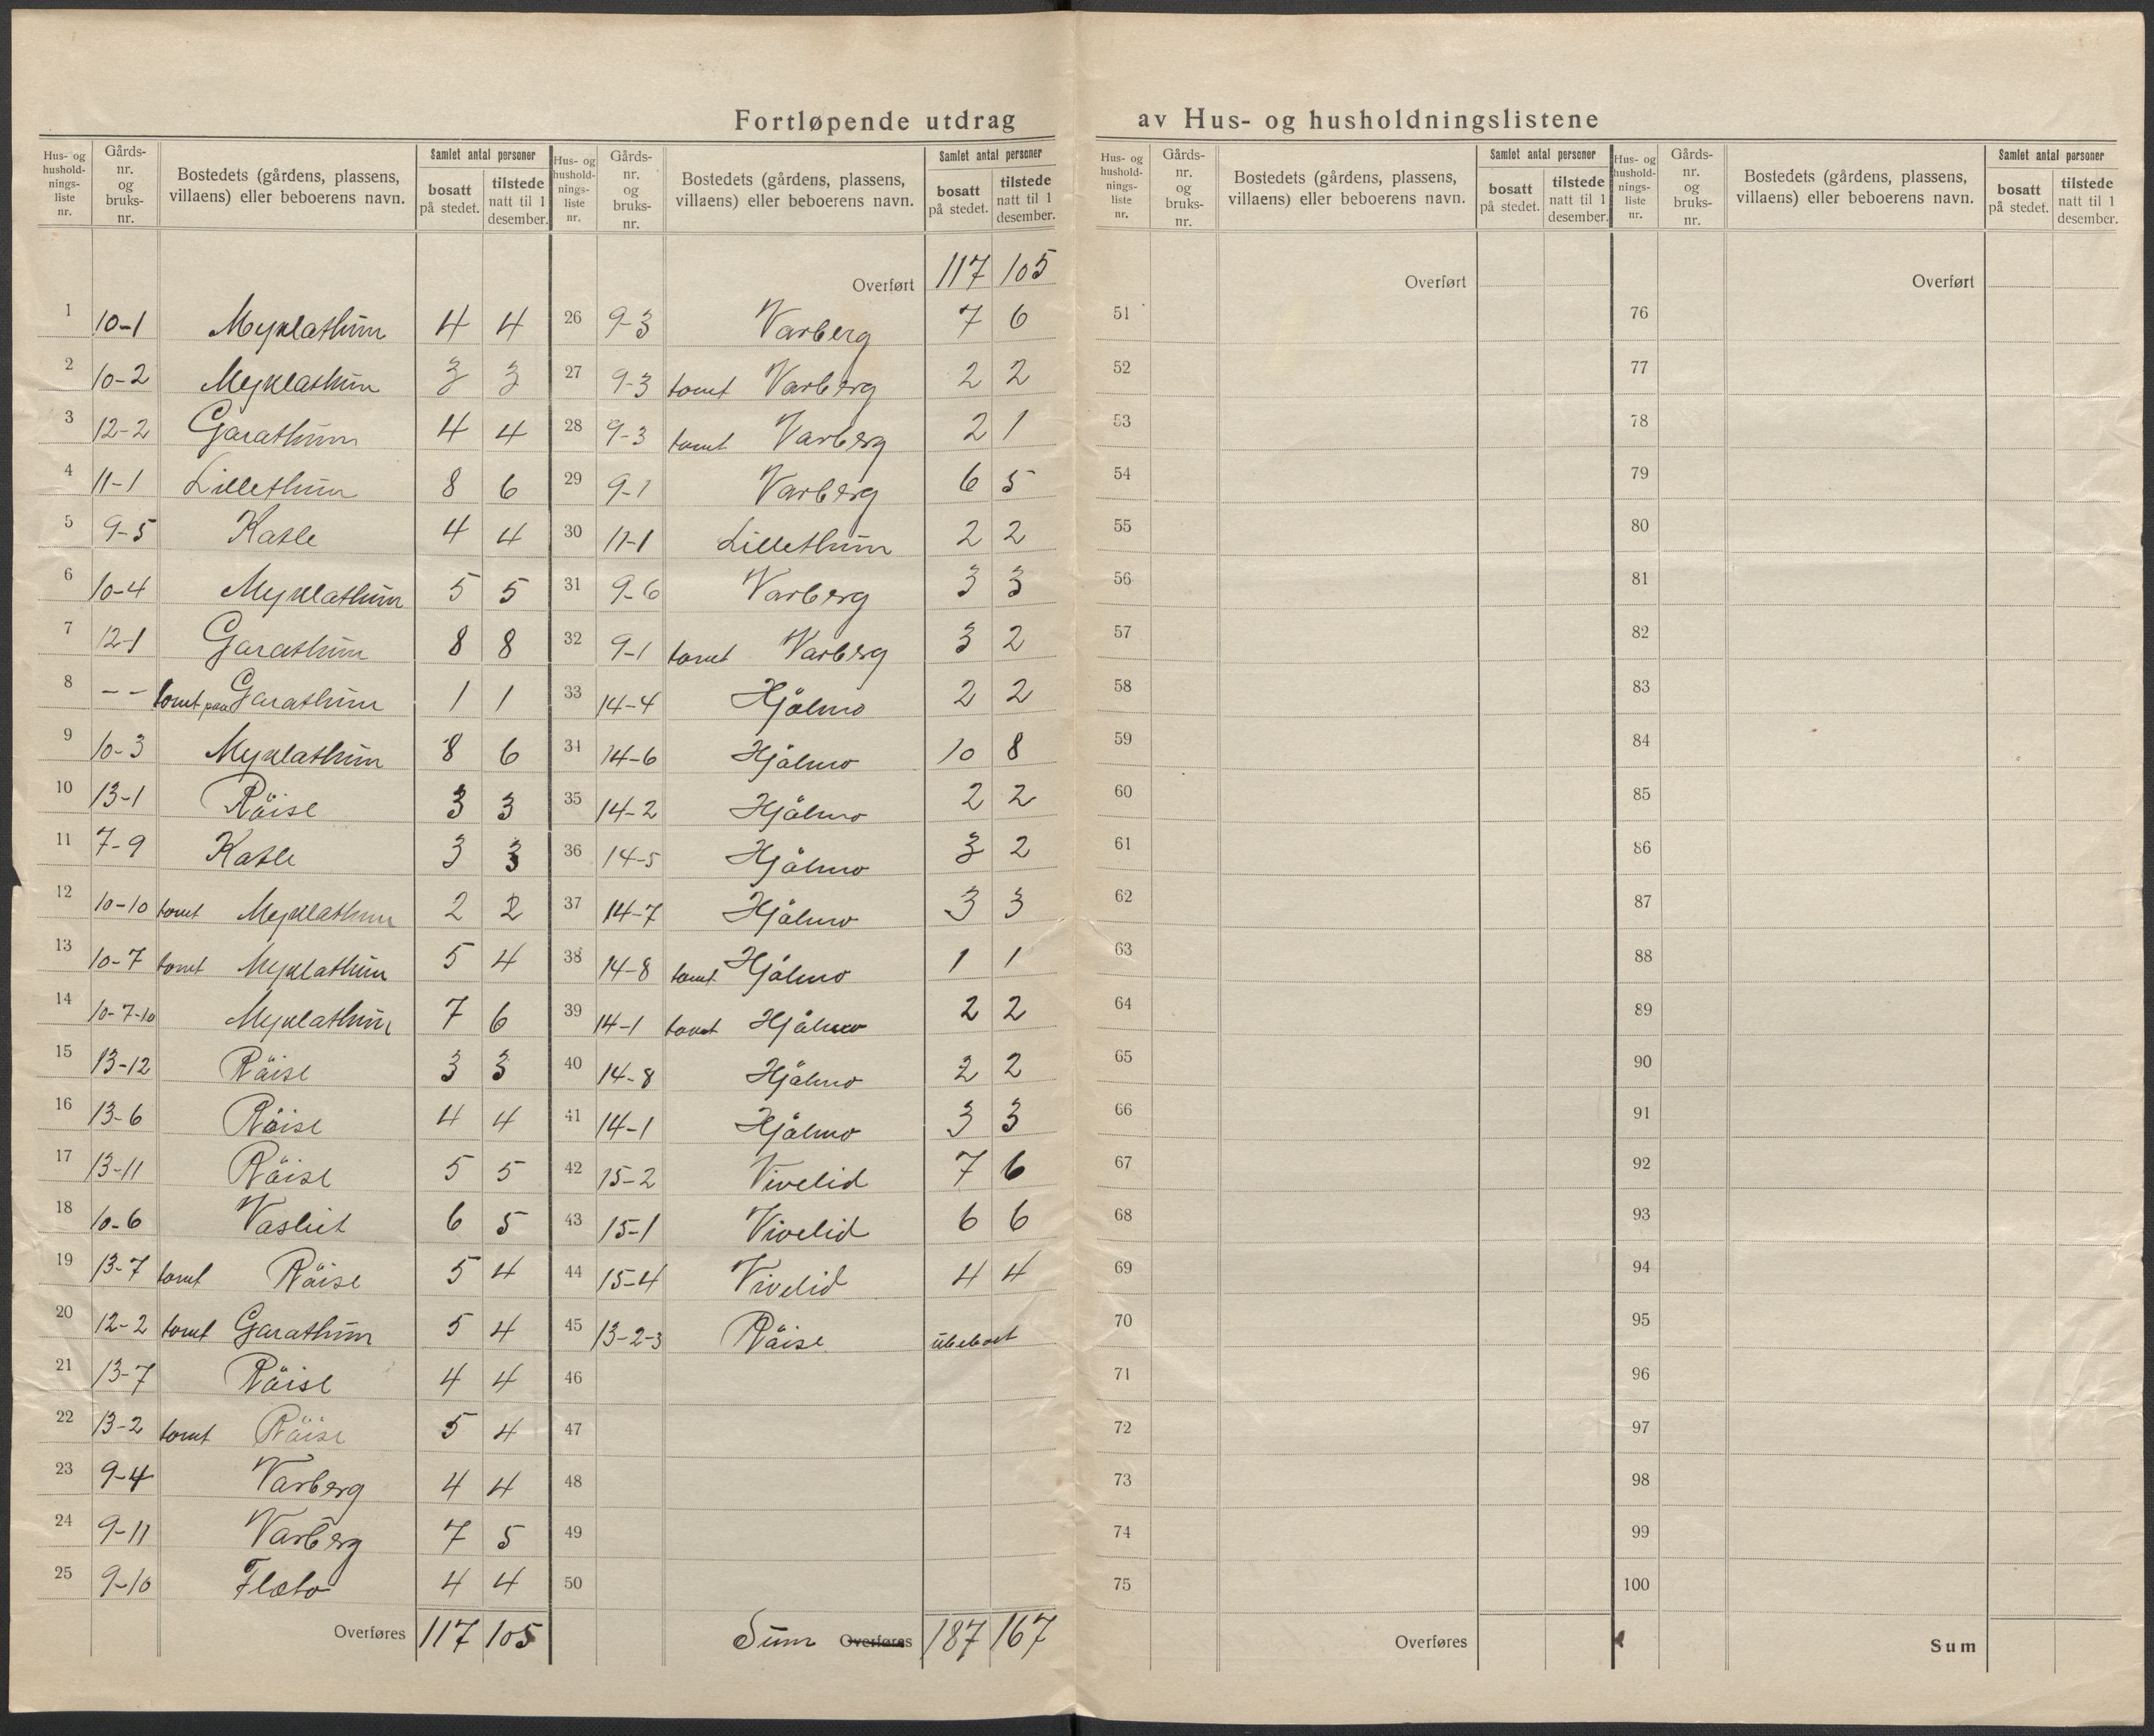 Fortløpende utdrag av Hus- og husholdningslistene
Hus- og hushold-nings-liste nr. Gårds-nr. og bruks-nr. Bostedets (gårdens, plassens, villaens) eller beboerens navn. Samlet antal personer bosatt på stedet. tilstede natt til 1 desember.
1 10-1 Myklathun 4 4
2 10-2 Myklathun 3 3
3 12-2 Garathun 4 4
4 11-1 Lillethun 8 6
5 9-5 Katle 4 4
6 10-4 Myklathun 5 5
7 12-1 Garathun 8 8
8 - - tomt paa Garathun 1 1
9 10-3 Myklathun 8 6
10 13-1 Röise 3 3
11 7-9 Katle 3 3
12 10-10 tomt Myklathun 2 2
13 10-7 tomt Myklathun 5 4
14 10-7-10 Myklathun 7 6
15 13-12 Röise 3 3
16 13-6 Röise 4 4
17 13-11 Röise 5 5
18 10-6 Vaslid 6 5
19 13-7 tomt Röise 5 4
20 12-2 tomt Garathun 5 4
21 13-7 Röise 4 4
22 13-2 tomt Röise 5 4
23 9-4 Varberg 4 4
24 9-11 Varberg 7 5
25 9-10 Flato 4 4
Overføres 117 105
Hus- og hushold-nings-liste nr. Gårds-nr. og bruks-nr. Bostedets (gårdens, plassens, villaens) eller beboerens navn. Samlet antal personer bosatt på stedet. tilstede natt til 1 desember.
Overført 117 105
26 9-3 Varberg 7 6
27 9-3 tomt Varberg 2 2
28 9-3 tomt Varberg 2 1
29 9-1 Varberg 6 5
30 11-1 Lillethun 2 2
31 9-6 Varberg 3 3
32 9-1 tomt Varberg 3 2
33 14-4 Hjålmo 2 2
34 14-6 Hjålmo 10 8
35 14-2 Hjålmo 2 2
36 14-5 Hjålmo 3 2
37 14-7 Hjålmo 3 3
38 14-8 tomt Hjålmo 1 1
39 14-1 tomt Hjålmo 2 2
40 14-8 Hjålmo 2 2
41 14-1 Hjålmo 3 3
42 15-2 Vivelid 7 6
43 15-1 Vivelid 6 6
44 15-4 Vivelid 4 4
45 13-2-3 Röise ubeboet
46
47
48
49
50
Sum Overføres 187 167
Hus- og hushold-nings-liste nr. Gårds-nr. og bruks-nr. Bostedets (gårdens, plassens, villaens) eller beboerens navn. Samlet antal personer bosatt på stedet. tilstede natt til 1 desember.
Overført
51
52
53
54
55
56
57
58
59
60
61
62
63
64
65
66
67
68
69
70
71
72
73
74
75
Overføres
Hus- og hushold-nings-liste nr. Gårds-nr. og bruks-nr. Bostedets (gårdens, plassens, villaens) eller beboerens navn. Samlet antal personer bosatt på stedet. tilstede natt til 1 desember.
Overført
76
77
78
79
80
81
82
83
84
85
86
87
88
89
90
91
92
93
94
95
96
97
98
99
100
Sum